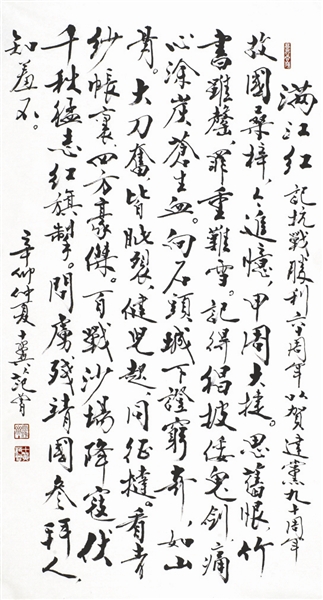 满江红 记抗戰勝利六十周年以賀建黨九十周年
故國桑梓，人追憶，甲周大捷。思舊恨，竹
書難罄，罪重難雪。記得倡披倭鬼劍，痛
心涂炭蒼生血。向石頭城下證窮奔，如山
骨。大刀奮，皆眦裂，健兒起，同征撻。看青
紗帳裏，四方豪傑。百戰沙場降寇伏，
千秋猛志紅旗掣。問虜殘靖國參拜人，
知羞不。
辛卯仲夏